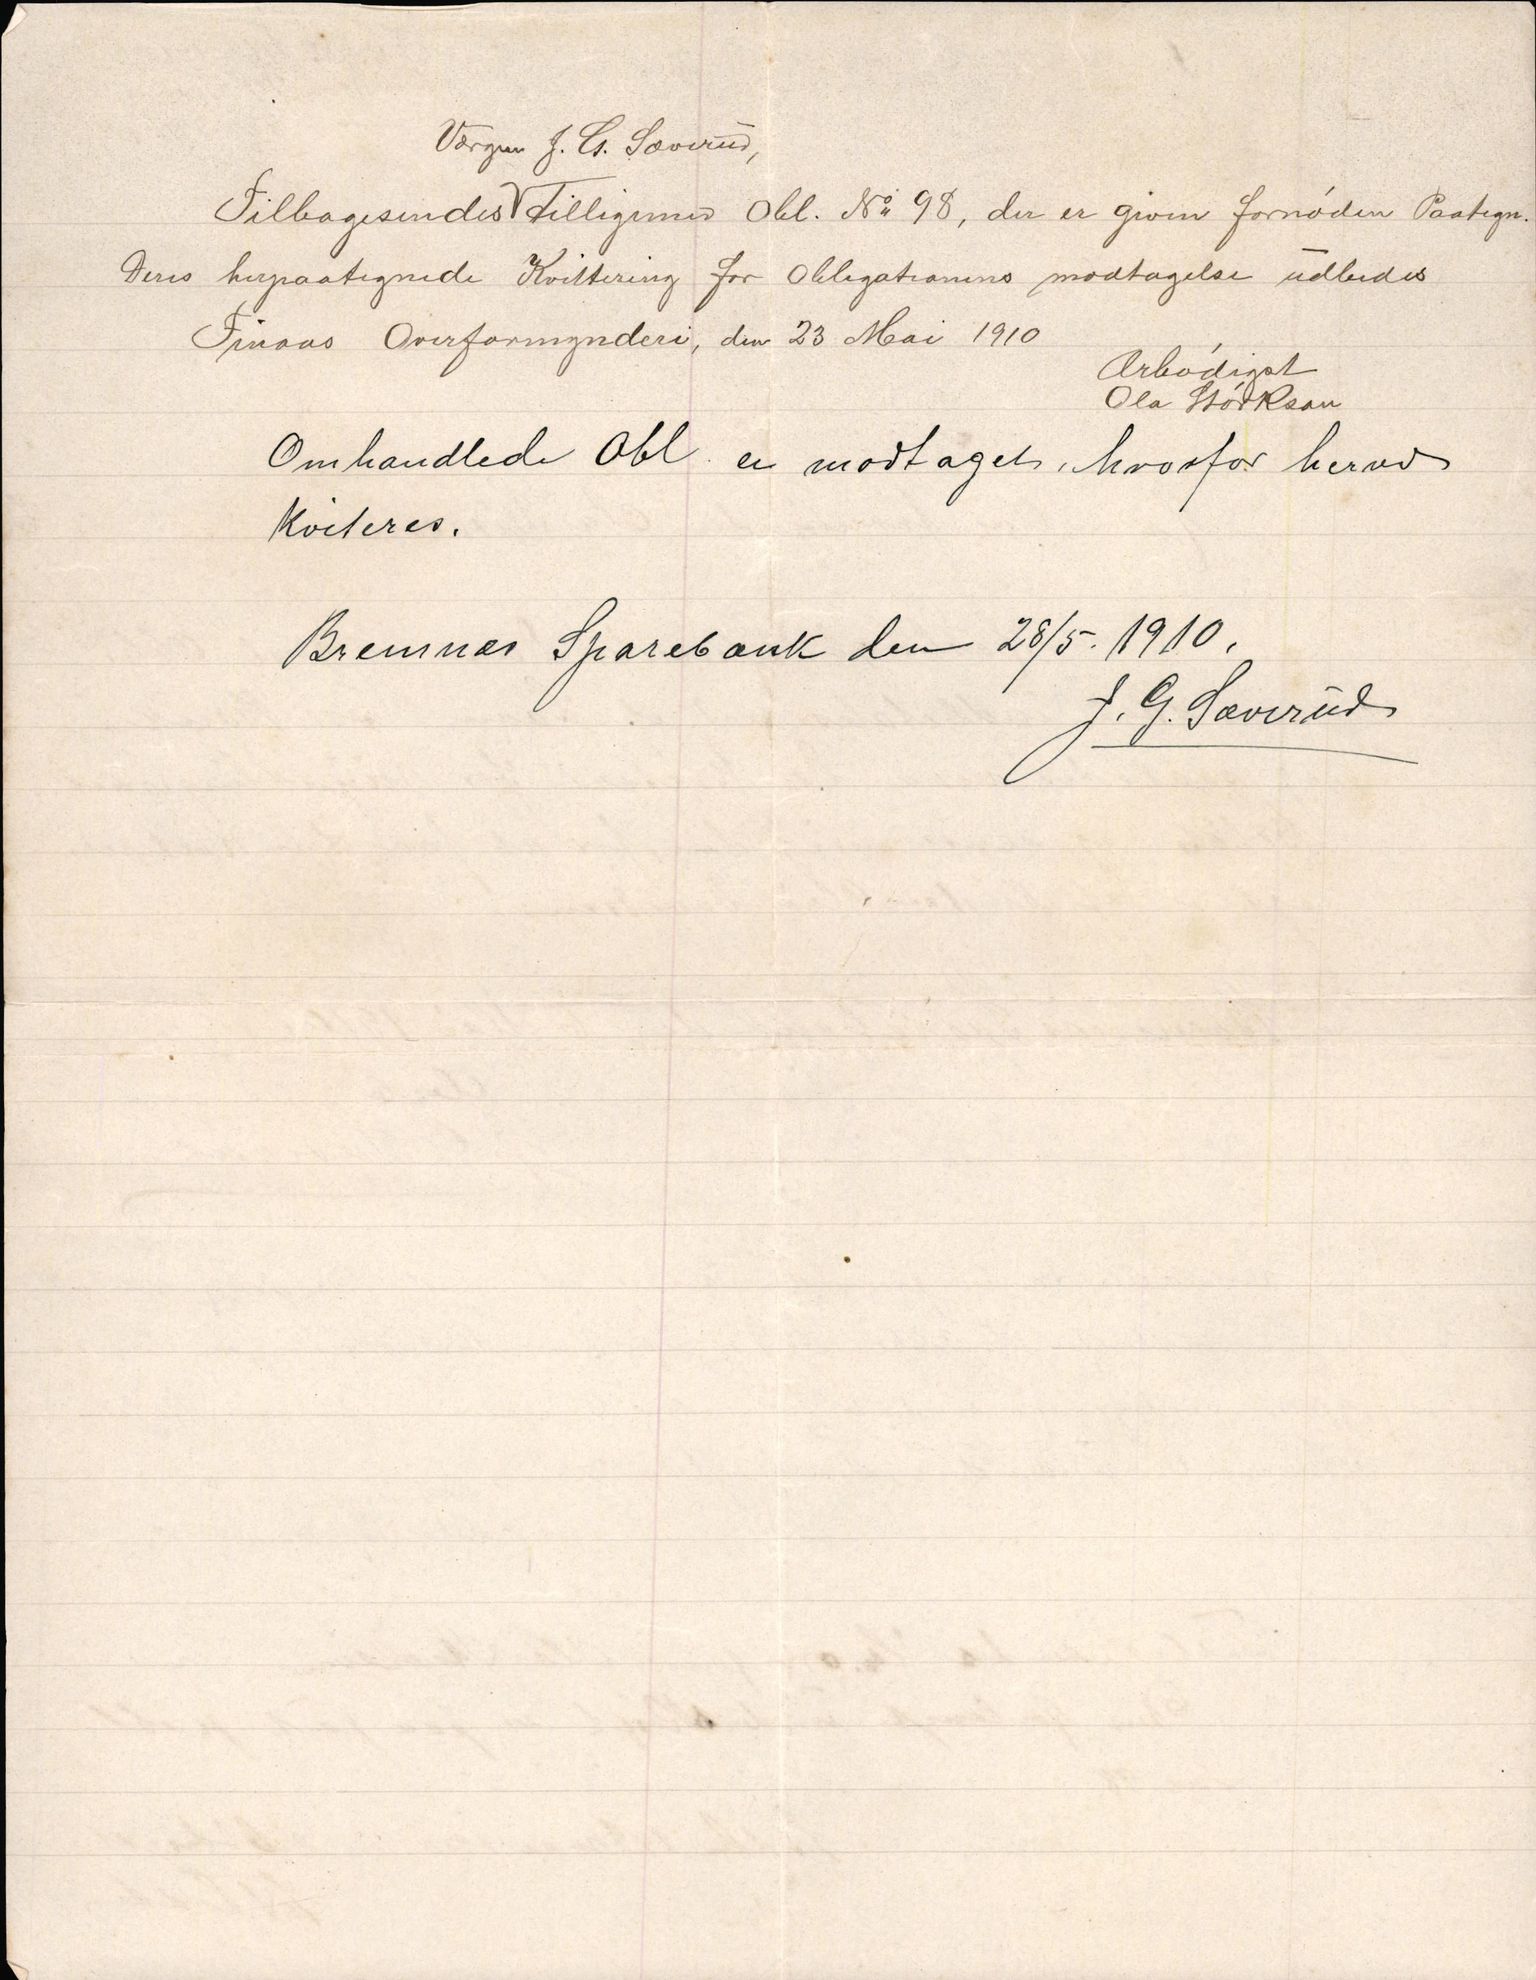 Værgen J. G. Sæverud,
Tilbagesendes Tilligemed Obl. No 98, der er given fornøden Paategn.
Deres herpaategnede Kvittering for Obligationens modtagelse udbedes
Finaas Overformynderi, den 23 Mai 1910
Ærbødigst
Ola Størkson
Omhandlede Obl. er modtaget, hvorfor herved
Kviteres.
Bremnes Sparebank den 28/5. 1910.
J. G. Sæverud